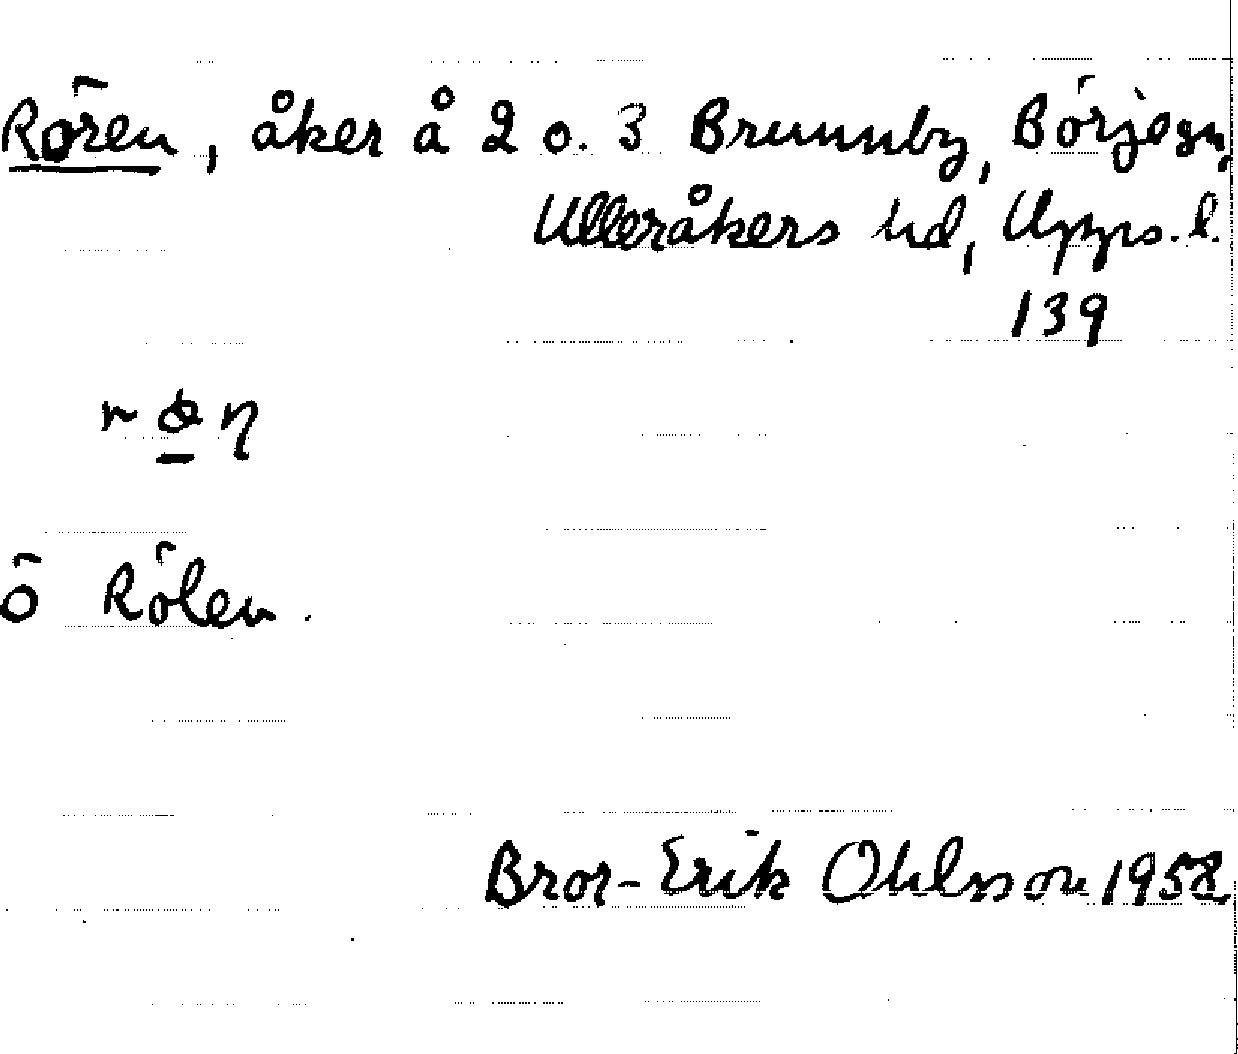 Rören, åker å 2 o. 3 Brunnby, Börje sn,
Ulleråkers hd, Upps. l.
139
ö Rölen.
Bror-Erik Ohlsson 1958